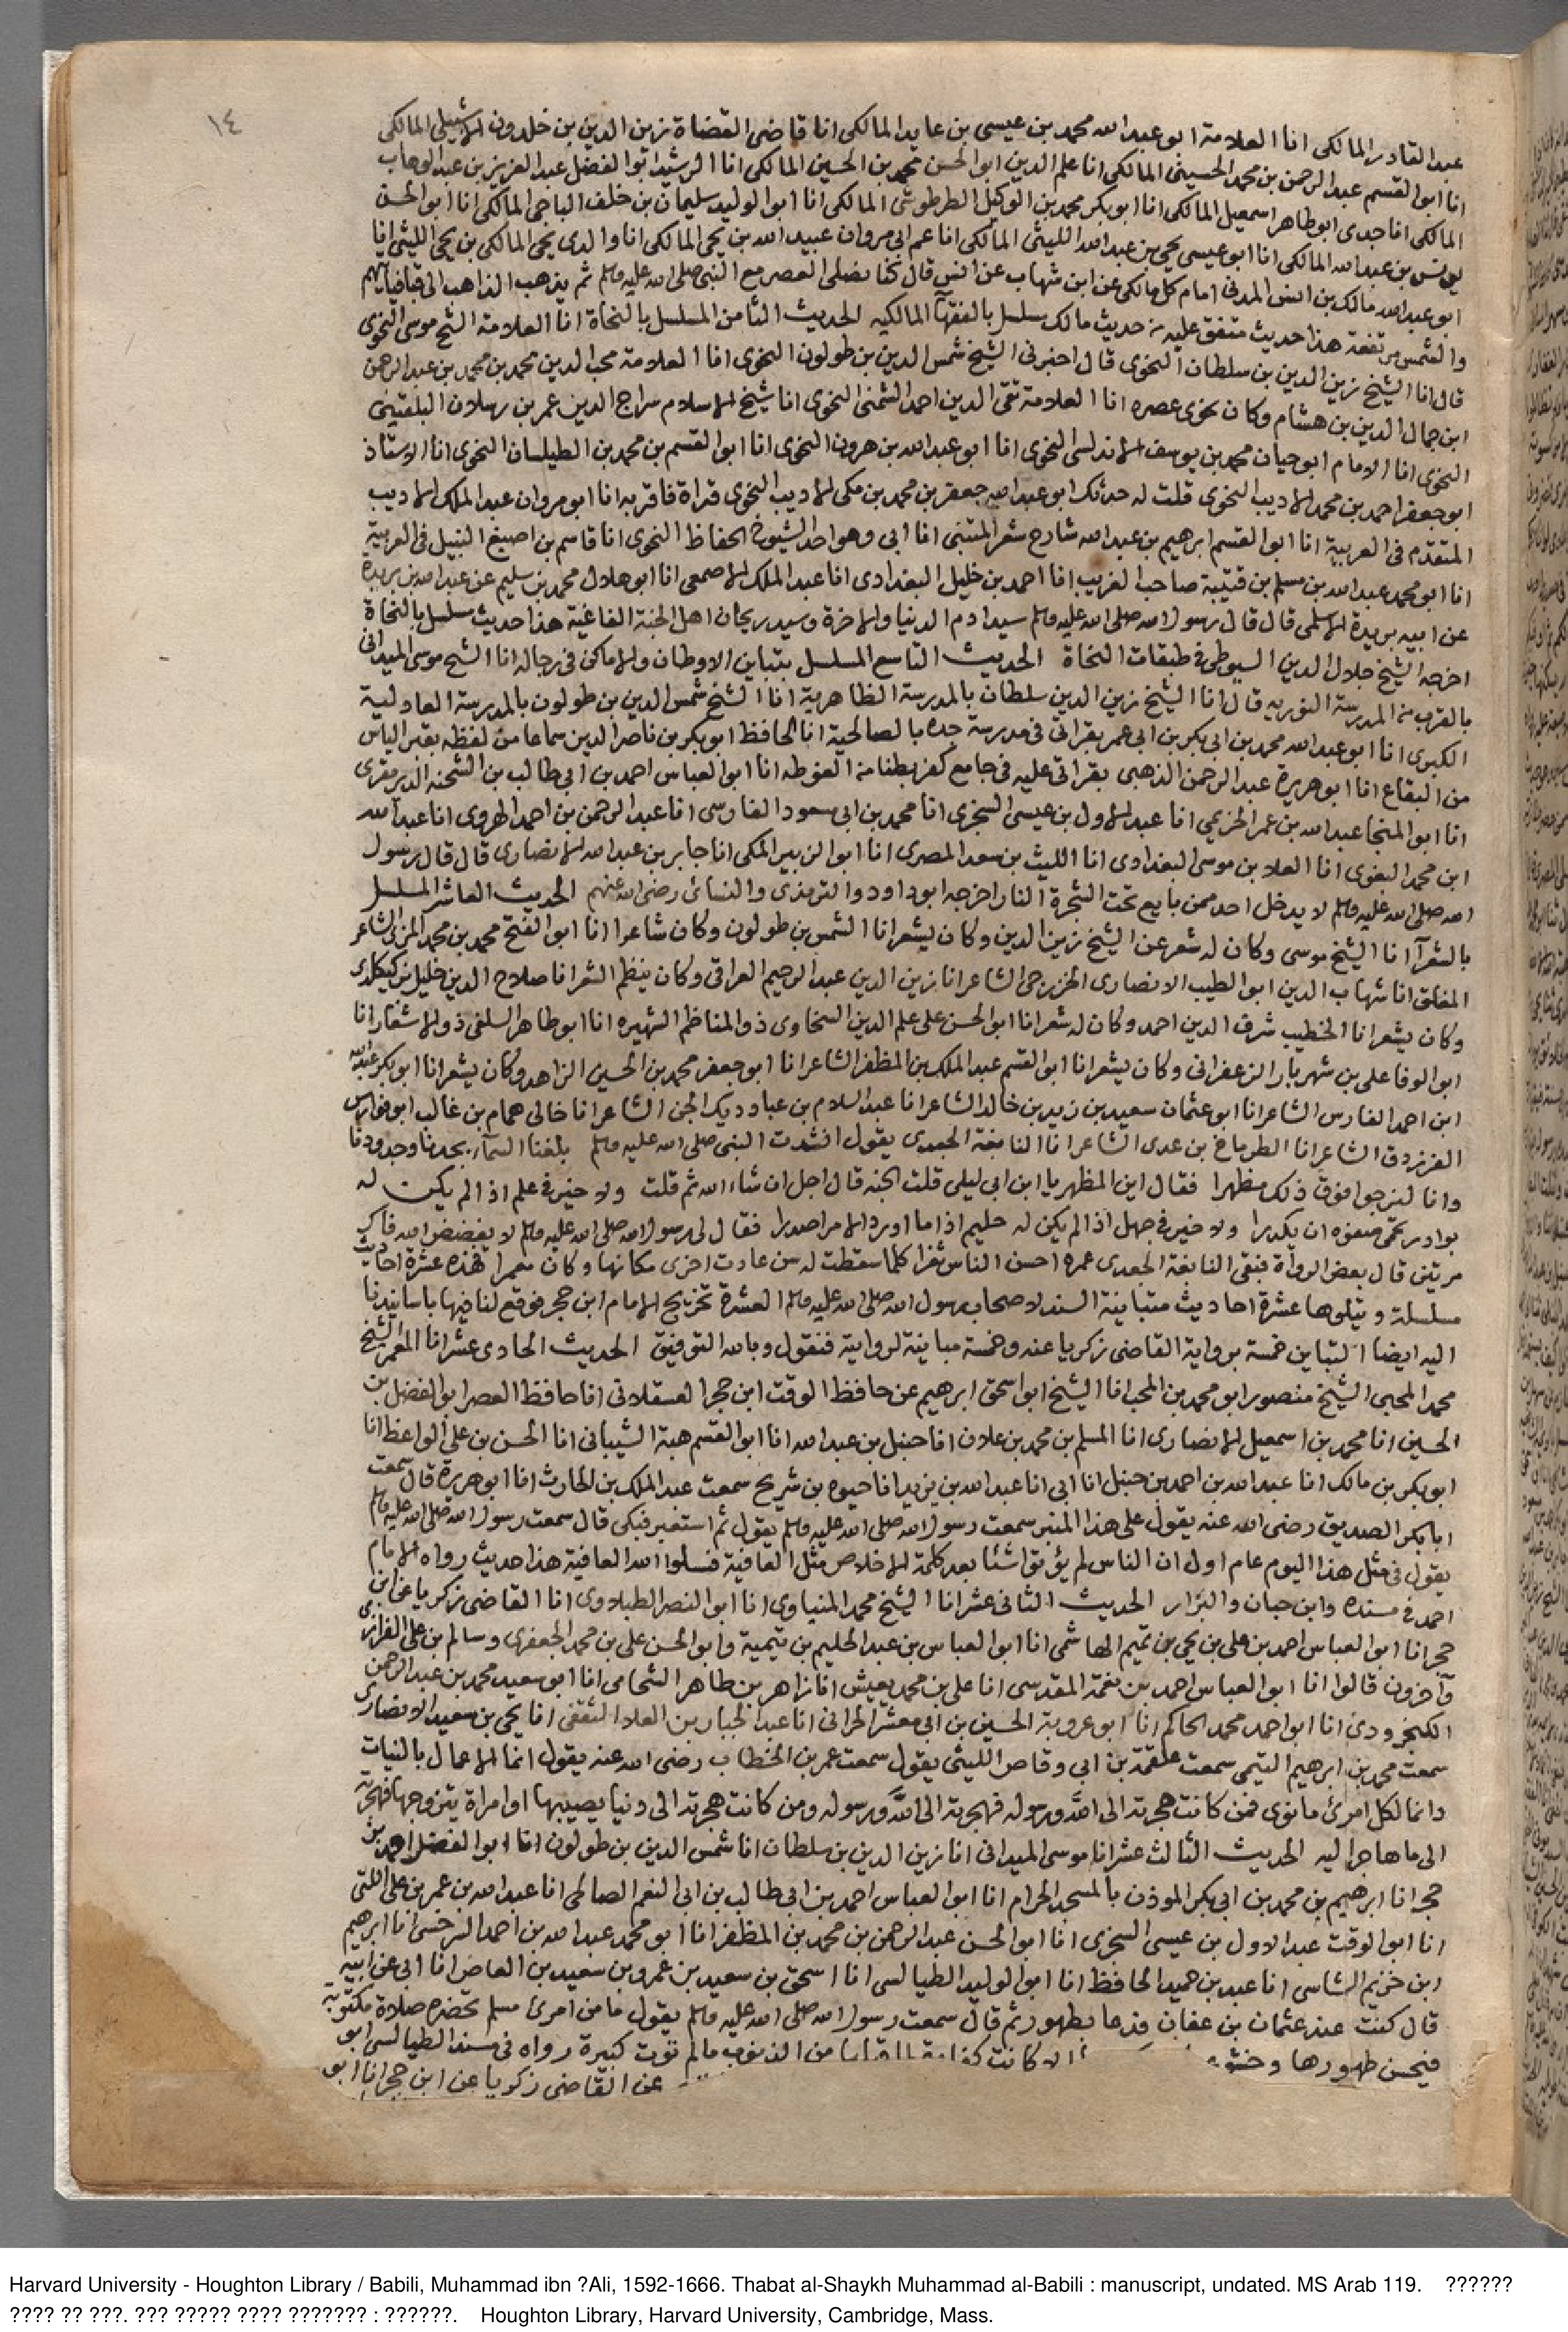 ١٤
عبد القادر المالكى انا العلامة ابو عبد الله محمد بن عيسى بن عابد المالكى انا قاضى القضاة زين الدين بن خلدون الاشبيلى المالكى
انا ابو القسم عبد الرحمن بن محمد الحسينى المالكى انا علم الدين ابو الحسن محمد بن الحسين المالكى انا الرشيد ابو الفضل عبد العزيز بن عبد الوهاب
المالكى انا جدى ابو طاهر اسمعيل المالكى انا ابو بكر محمد بن الوكيل الطرطوشى المالكى انا ابو الوليد سليمان بن خلف الباجى المالكى انا ابو الحسن
يونس بن عبد الله المالكى انا ابو عيسى يحيى بن عبد الله الليثى المالكى انا عم ابى مروان عبيد الله بن يحيى المالكى انا والدى يحيى المالكى بن يحيى الليثى انا
ابو عبد الله مالك بن انس المدنى امام كل مالكى عن ابن شهاب عن انس قال كنا نصلى العصر مع النبى صلى الله عليه وسلم ثم يذهب الذاهب الى قبا فياتيهم
والشمس مرتفعة هذا حديث متفق عليه من حديث مالك سلسل بالفقهآ المالكيه الحديث الثامن المسلسل بالنحاة انا العلامة الشيخ موسى النحوى
قال انا الشيخ زين الدين بن سلطان النحوى قال اخبرنى الشيخ شمس الدين بن طولون النحوى انا العلامة محب الدين محمد بن محمد بن عبد الرحمن
ابن جمال الدين بن هشام وكان نحوى عصره انا العلامة تقى الدين احمد الشمنى النحوى انا شيخ الاسلام سراج الدين عمر بن رسلان البلقينى
النحوى انا الامام ابو حيان محمد بن يوسف الاندلسى النحوى انا ابو عبد الله بن هرون النحوى انا ابو القسم بن محمد بن الطيلسان النحوى انا الاستاذ
ابو جعفر احمد بن محمد الاديب النحوى قلت له حدثك ابو عبد الله جعفر بن محمد بن مكى الاديب النحوى قراة فاقر به انا ابو مروان عبد الملك الاديب
المتقدم فى العربية انا ابو القسم ابرهيم بن عبد الله شارح شعر المتنبى انا ابى وهو احد الشيوخ الحفاظ النحوى انا قاسم بن اصبغ النبيل فى العربية
انا ابو محمد عبد الله بن مسلم بن قتيبة صاحب الغريب انا احمد بن خليل البغدادى انا عبد الملك الاصمعى انا ابو هلال محمد بن سليم عن عبد الله بن بريدة
عن ابيه بريدة الاسلمى قال قال رسول الله صلى الله عليه وسلم سيد ادم الدنيا والاخرة وسيد ريحان اهل الجنة الفاغية هذا حديث سلسل بالنحاة
اخرجه الشيخ جلال الدين السيوطى فى طبقات النحاة الحديث التاسع المسلسل بتباين الاوطان والاماكن فى رجاله انا الشيخ موسى الميدانى
بالقرب من المدرسة النوريه قال انا الشيخ زين الدين سلطان بالمدرسة الظاهرية انا الشيخ شمس الدين بن طولون بالمدرسة العادلية
الكبرى انا ابو عبد الله محمد بن ابى بكر بن ابى عمر بقراتى فى مدرسة جده بالصالحية انا الحافظ ابو بكر بن ناصر الدين سماعا من لفظه بقبر الياس
من البقاع انا ابو هريرة عبد الرحمن الذهبى بقراتى عليه فى جامع كفربطنا من الغوطه انا ابو العباس احمد بن ابى طالب بن الشحنه الدير مقرى
انا ابو المنجا عبد الله بن عمر الحزيمى انا عبد الاول بن عيسى السجزى انا محمد بن ابى مسعود الفارسى انا عبد الرحمن بن احمد الهروى انا عبد الله
ابن محمد البغوى انا العلا بن موسى البغدادى انا الليث بن سعد المصرى انا ابو الزبير المكى انا جابر بن عبد الله الانصارى قال قال رسول
الله صلى الله عليه وسلم لا يدخل احد ممن بايع تحت الشجرة النار اخرجه ابو داود والترمذى والنسائى رضى الله عنهم الحديث العاشر المسلسل
بالشعرآ انا الشيخ موسى وكان له شعر عن الشيخ زين الدين وكان يشعر انا الشمس بن طولون وكان شاعرا انا ابو الفتح محمد بن محمد المزى الشاعر
المفلق انا شهاب الدين ابو الطيب الانصارى الخزرجى الشاعر انا زين الدين عبد الرحيم العراقى وكان ينظم الشعر انا صلاح الدين خليل بن كيكلدى
وكان يشعر انا الخطيب شرف الدين احمد وكان له شعر انا ابو الحسن على علم الدين السخاوى ذو المناظم الشهيره انا ابو طاهر السلفى ذو الاشعار انا
ابو الوفا على بن شهريار الزعفرانى وكان يشعر انا ابو القسم عبد الملك بن المظفر الشاعر انا ابو جعفر محمد بن الحسين الزاهد وكان يشعر انا ابو بكر عبد الله
ابن احمد الفارس الشاعر انا ابو عثمان سعيد بن زيد بن خالد الشاعر انا عبد السلام بن عباد ديك الجن الشاعر انا خالى همام بن غالب ابو فواس
الفرزدق الشاعر انا الطرماخ بن عدى الشاعر انا النابغة الجعدى يقول انشدت النبى صلى الله عليه وسلم بلغنا السمآ بجدنا وجدودنا
وانا لنرجوا فوق ذلك مظهرا فقال اين المظهر يا ابن ابى ليلى قلت الجنه قال اجل ان شاء الله ثم قلت ولا خير فى علم اذا لم يكن له
بوادر تحمى صفوه ان يكدرا ولا خير فى جهل اذا لم يكن له حليم اذا ما اورد الامر اصدرا فقال لى رسول الله صلى الله عليه وسلم لا يفضض الله فاك
مرتين قال بعض الرواة فبقى النابغة الجعدى عمره احسن الناس ثغرا كلما سقطت له سن عادت اخرى مكانها وكان معمرا فهذه عشرة احاديث
مسلسلة ويتلوها عشرة احاديث متباينة السند لاصحاب رسول الله صلى الله عليه وسلم العشرة تخريج الامام ابن حجر فوقع لنا فيها باسانيدنا
اليه ايضا التباين خمسة برواية القاضى زكريا عنه وخمسة مباينة لروايته فنقول وبالله التوفيق الحديث الحادى عشر انا المعمر الشيخ
محمد المحبى الشيخ منصور ابو محمد بن المحب انا الشيخ ابو اسحق ابرهيم عن حافظ الوقت ابن حجر العسقلانى انا حافظ العصر ابو الفضل بن
الحسين انا محمد بن اسمعيل الانصارى انا المسلم بن محمد بن علان انا حنبل بن عبد الله انا ابو القسم هبة الشيبانى انا الحسن بن على الواعظ انا
ابو بكر بن مالك انا عبد الله بن احمد بن حنبل انا ابى انا عبد الله بن يزيد انا حيوه بن شريح سمعت عبد الملك بن الحارث انا ابو هريرة قال سمعت
ابا بكر الصديق رضى الله عنه يقول على هذا المنبر سمعت رسول الله صلى الله عليه وسلم يقول ثم استعبر فبكى قال سمعت رسول الله صلى الله عليه وسلم
يقول فى مثل هذا اليوم عام اول ان الناس لم يؤتوا شئا بعد كلمة الاخلاص مثل العافية فسلوا الله العافية هذا حديث رواه الامام
احمد فى مسنده وابن حبان والبزار الحديث الثانى عشر انا الشيخ محمد المنياوى انا ابو النصر الطبلاوى انا القاضى زكريا عن ابن
حجر انا ابو العباس احمد بن على بن يحيى بن تميم الهاشمى انا ابو العباس بن عبد الحليم بن تيمية وابو الحسن على بن محمد الجعفرى وسالم بن على الفزارى
وآخرون قالوا انا ابو العباس احمد بن نعمة المقدسى انا على بن محمد يعيش انا زاهر بن طاهر الشحامى انا ابو سعيد محمد بن عبد الرحمن
الكنجرودى انا ابو احمد محمد الحاكم انا ابو عروبة الحسين بن ابى معشر الحرانى انا عبد الجبار بن العلا الثقفى انا يحيى بن سعيد الانصارى
سمعت محمد بن ابرهيم التيمى سمعت علقمة بن ابى وقاص الليثى يقول سمعت عمر بن الخطاب رضى الله عنه يقول انما الاعمال بالنيات
وانما لكل امرئ ما نوى فمن كانت هجرته الى الله ورسوله فهجرته الى الله ورسوله ومن كانت هجرته الى دنيا يصيبها او امراة يتزوجها فهجرته
الى ما هاجر اليه الحديث الثالث عشر انا موسى الميدانى انا زين الدين بن سلطان انا شمس الدين بن طولون انا ابو الفضل احمد بن
حجر انا ابرهيم بن محمد بن ابى بكر الموذن بالمسجد الحرام انا ابو العباس احمد بن ابى طالب بن ابى النعم الصالحى انا عبد الله بن عمر بن على اللتى
انا ابو الوقت عبد الاول بن عيسى السجزى انا ابو الحسن عبد الرحمن بن محمد بن المظفر انا ابو محمد عبد الله بن احمد السرخسى انا ابرهيم
ابن خزيم الشاسى انا عبد بن حميد الحافظ انا ابو الوليد الطيالسى انا اسحق بن سعيد بن عمرو بن سعيد بن العاص انا ابى عن ابيه
قال كنت عند عثمان بن عفان فدعا بطهور ثم قال سمعت رسول الله صلى الله عليه وسلم يقول ما من امرئ مسلم تحضره صلاة مكتوبة
فيحسن طهورها الا كانت كفارة لما قبلها من الذنوب ما لم تؤت كبيرة رواه فى مسند الطيالسى ابو
عن القاضى زكريا عن ابن حجر انا ابو
Harvard University - Houghton Library / Babili, Muhammad ibn ?Ali, 1592-1666. Thabat al-Shaykh Muhammad al-Babili : manuscript, undated. MS Arab 119. ??????
???? ?? ???. ??? ????? ???? ??????? : ??????. Houghton Library, Harvard University, Cambridge, Mass.